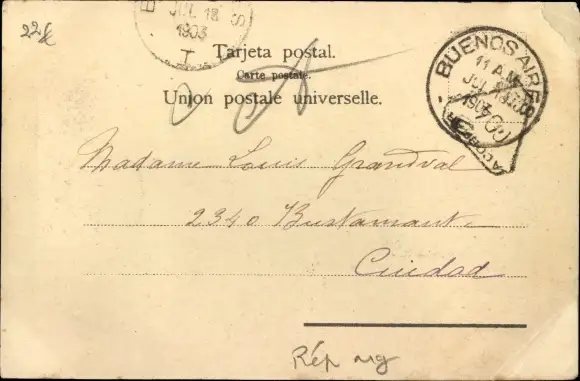 22£
JUL 18
1903
T
Tarjeta postal.
Carte postale.
Union postale universelle.
BUENOS AIRES
11 A.M
JUL 18
1903
Madame Louis Grandval
2340 Bustamante
Ciudad
Rép